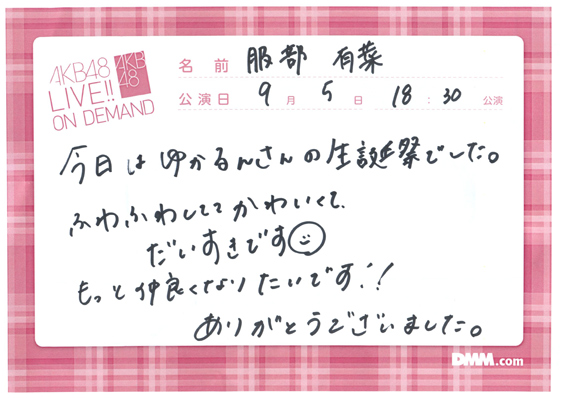 AKB48
LIVE!!
ON DEMAND
AKB
48
名前 服部 有菜
公演日 9月5日 18:30 公演
今日はゆかるんさんの生誕祭でした。
ふわふわしててかわいくて、
だいすきです
もっと仲良くなりたいです!!
ありがとうございました。
DMM.com